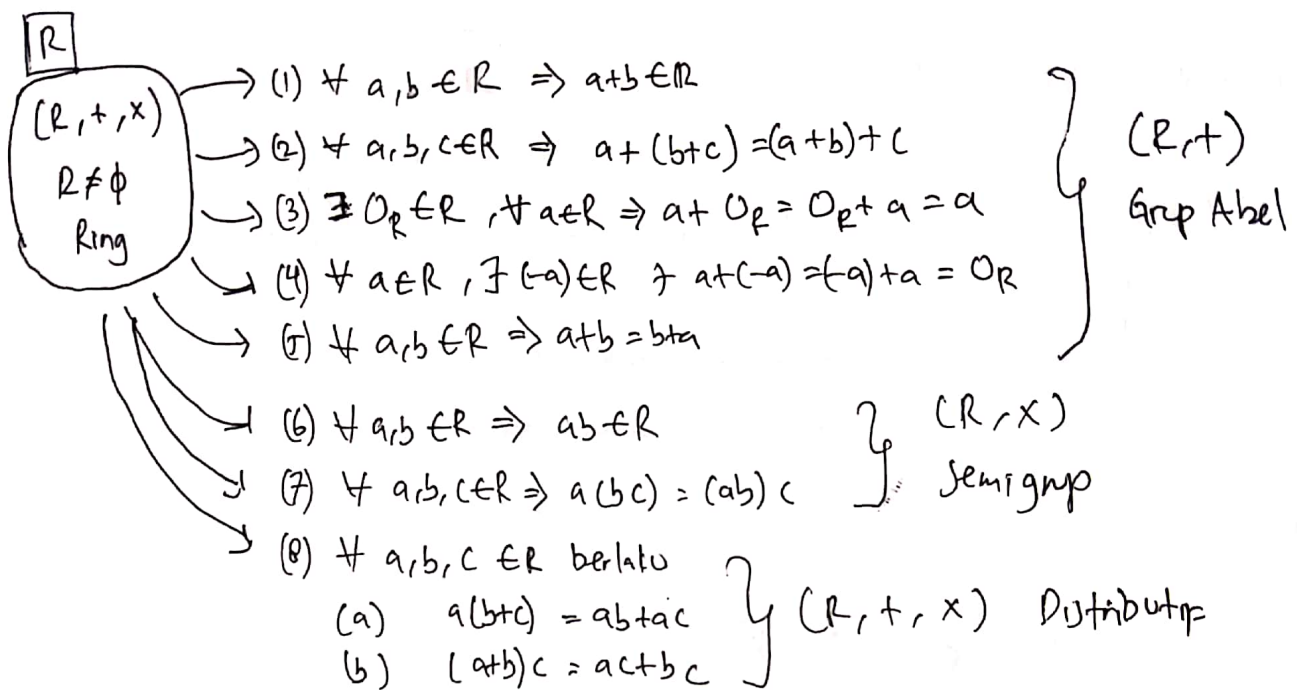 R
(R,+,×)
R≠∅
Ring
(1) ∀ a,b ∈ R ⇒ a+b ∈ R
(2) ∀ a,b,c ∈ R ⇒ a+(b+c) = (a+b)+c
(3) ∃ 0_R ∈ R, ∀ a ∈ R ⇒ a+0_R = 0_R+a = a
(4) ∀ a ∈ R, ∃ (-a) ∈ R ∋ a+(-a) = (-a)+a = 0_R
(5) ∀ a,b ∈ R ⇒ a+b = b+a
(R,+)
Grup Abel
(6) ∀ a,b ∈ R ⇒ ab ∈ R
(7) ∀ a,b,c ∈ R ⇒ a(bc) = (ab)c
(R,×)
Semigrup
(8) ∀ a,b,c ∈ R berlaku
(a) a(b+c) = ab+ac
(b) (a+b)c = ac+bc
(R,+,×) Distributif